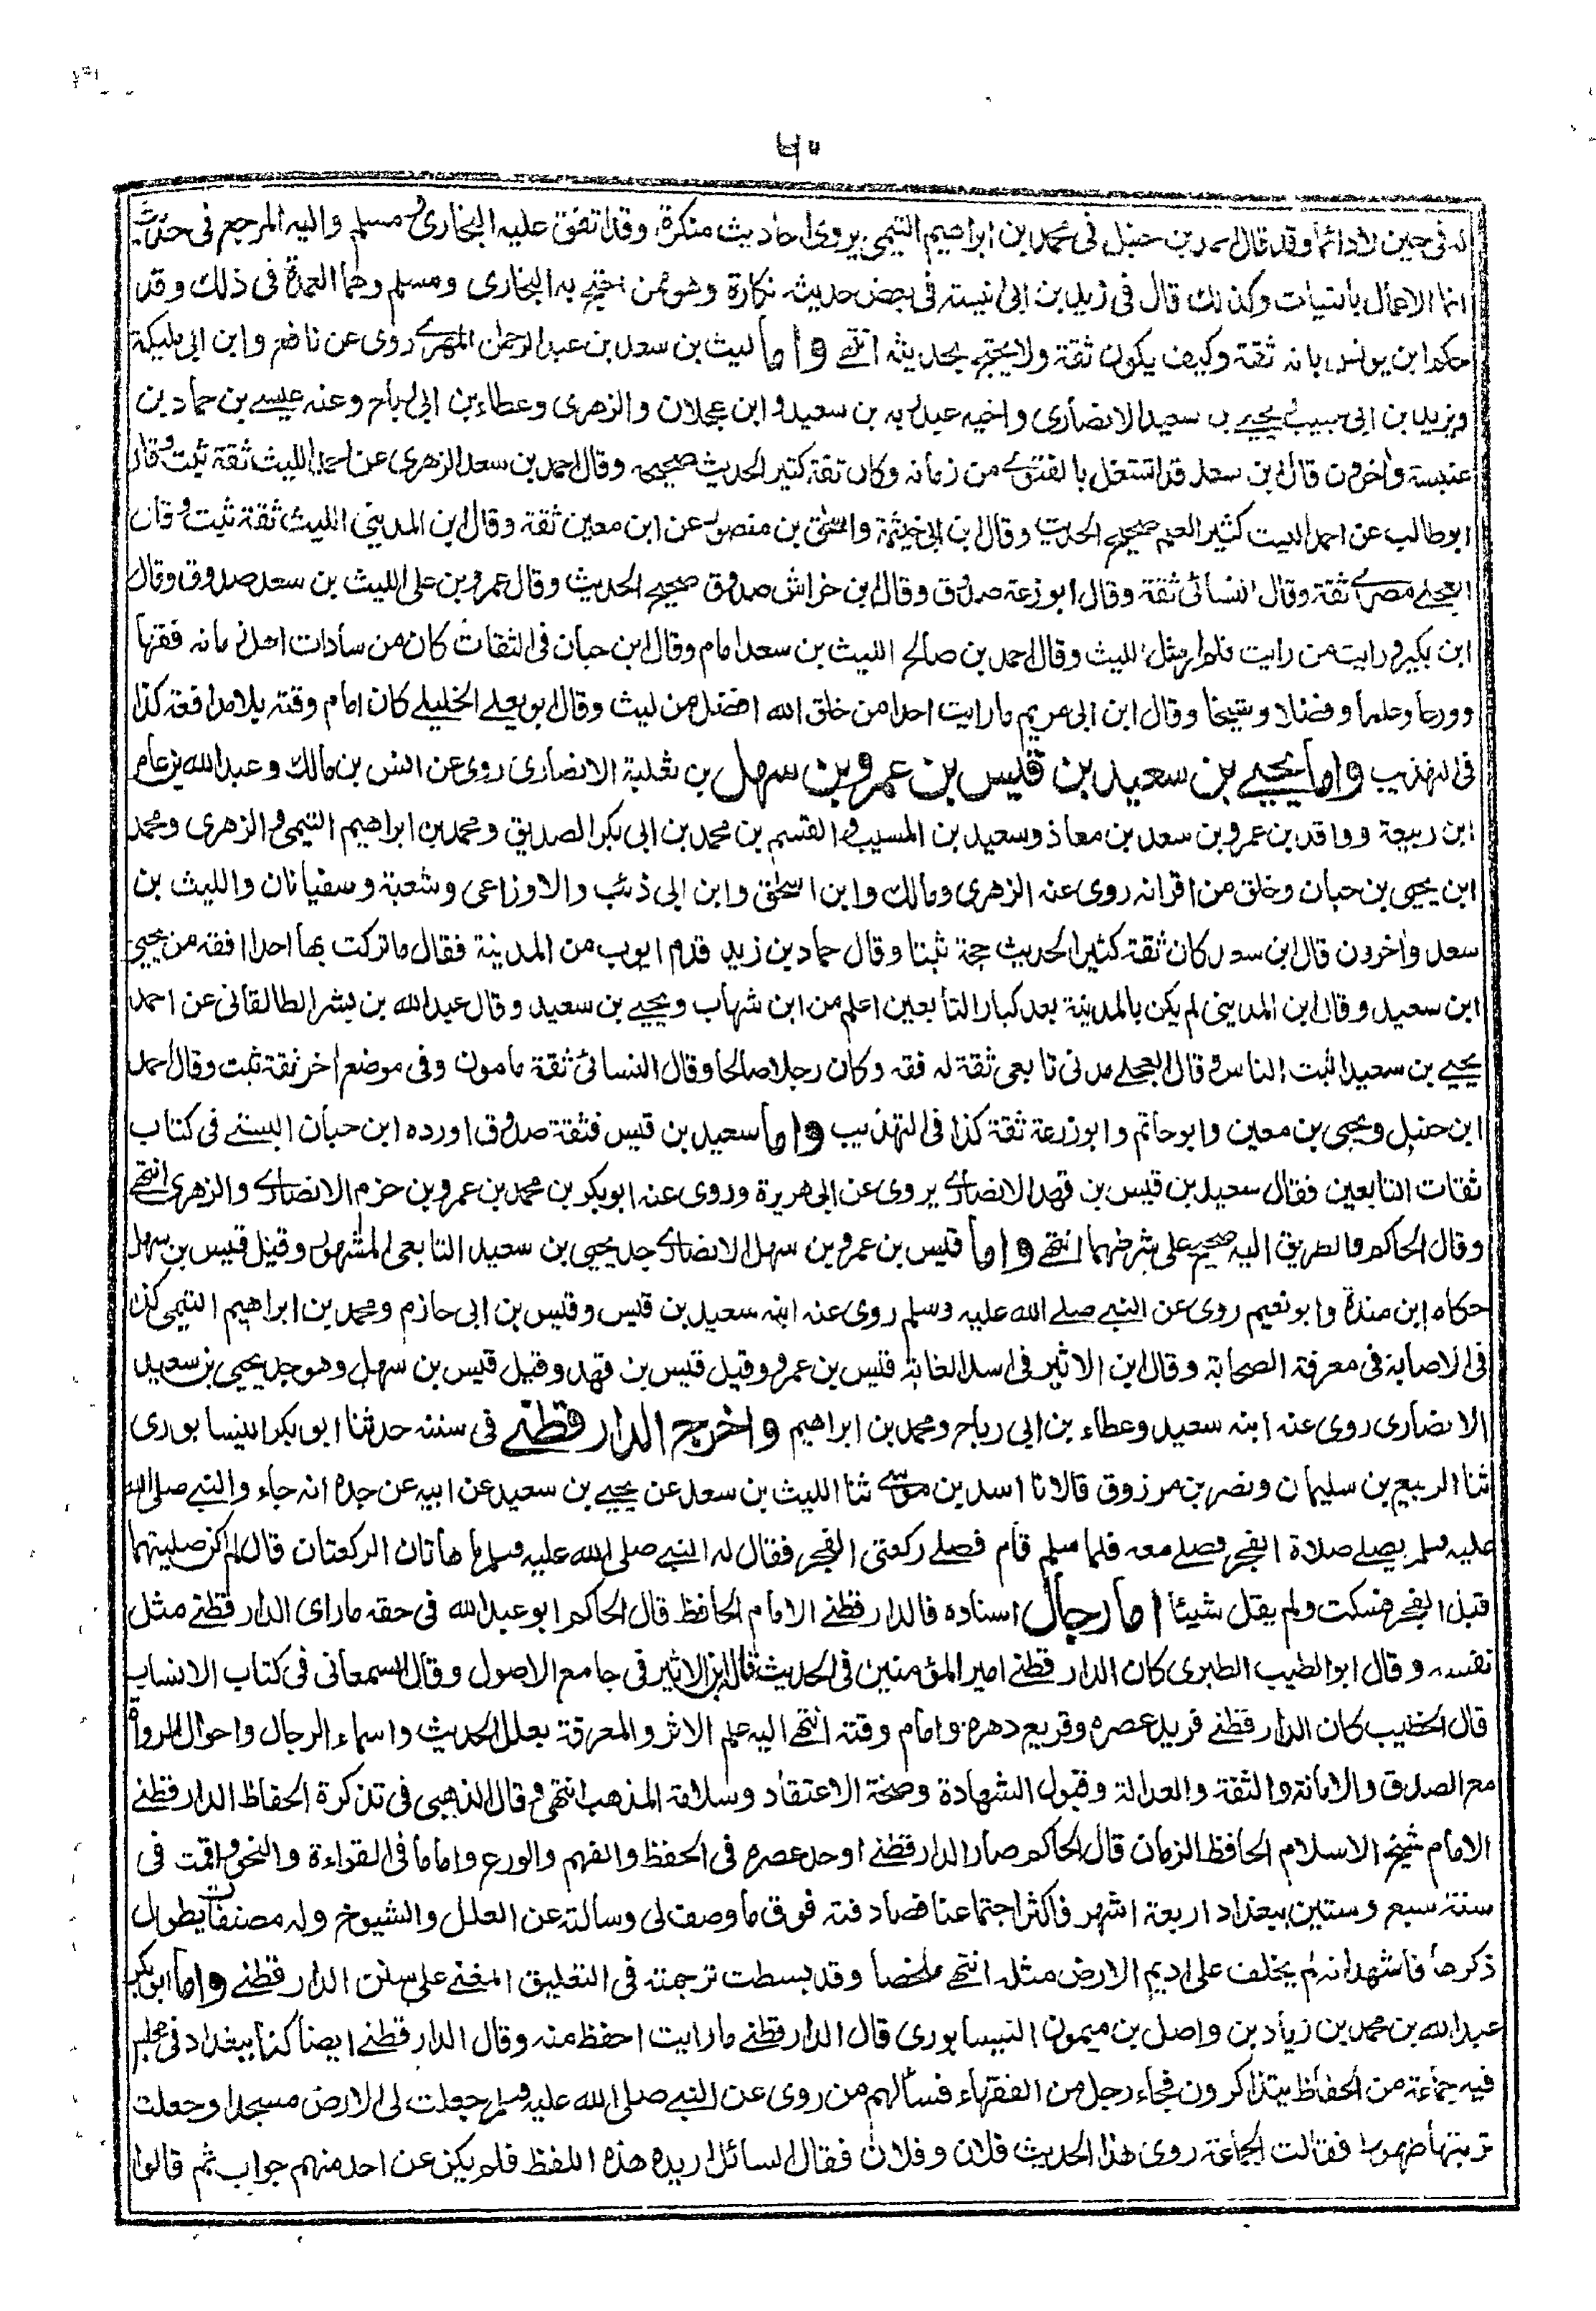 ۵۰
له فى حين لا دائما وقد قال احمد بن حنبل فى محمد بن ابراهيم التيمى يروى احاديث منكرة وقد اتفق عليه البخارى و مسلم واليه المرجع فى حديث
انما الاعمال بالنيات وكذلك قال فى زيد بن ابى انيسة فى بعض حديثه نكارة وهو ممن احتج به البخارى ومسلم وهما العمدة فى ذلك وقد
حكم ابن يونس بانه ثقة وكيف يكون ثقة ولا يحتج بحديثه انتهے واما ليث بن سعد بن عبد الرحمن المصرے روى عن نافع وابن ابى مليكة
ويزيد بن ابى حبيب و يحيے بن سعيد الانصارى واخيه عبد ربه بن سعيد و ابن عجلان والزهرى وعطاء بن ابى رباح وعنه عيسے بن حماد بن
عنبسة واخرون قال ابن سعد قد اشتغل بالفتوے من زمانه وكان ثقة كثير الحديث صحيحه وقال احمد بن سعد الزهرى عن احمد الليث ثقة ثبت وقال
ابو طالب عن احمد الليث كثير العلم صحيح الحديث وقال ابن ابى خيثمة واسحق بن منصور عن ابن معين ثقة وقال ابن المدينى الليث ثقة ثبت وقال
العجلے مصرے ثقة وقال النسائى ثقة وقال ابو زرعة صدوق وقال ابن خراش صدوق صحيح الحديث وقال عمرو بن على الليث بن سعد صدوق وقال
ابن بكير و رايت من رايت فلم ار مثل الليث وقال احمد بن صالح الليث بن سعد امام وقال ابن حبان فى الثقات كان من سادات اهل زمانه فقها
وورعا وعلما وفضلا وسخا وقال ابن ابى مريم ما رايت احدا من خلق الله افضل من ليث وقال ابو يعلے الخليلے كان امام وقته بلا مدافعة كذا
فى التهذيب واما يحيے بن سعيد بن قيس بن عمرو بن سهل بن ثعلبة الانصارى روى عن انس بن مالك وعبد الله بن عامر
ابن ربيعة وواقد بن عمرو بن سعد بن معاذ وسعيد بن المسيب والقسم بن محمد بن ابى بكر الصديق ومحمد بن ابراهيم التيمى و الزهرى ومحمد
ابن يحيى بن حبان وخلق من اقرانه روى عنه الزهرى ومالك وابن اسحق وابن ابى ذئب والاوزاعى وشعبة وسفيانان والليث بن
سعد واخرون قال ابن سعد كان ثقة كثير الحديث حجة ثبتا وقال حماد بن زيد قدم ايوب من المدينة فقال ما تركت بها احدا افقه من يحيى
ابن سعيد وقال ابن المدينى لم يكن بالمدينة بعد كبار التابعين اعلم من ابن شهاب ويحيے بن سعيد وقال عبد الله بن بشر الطالقانى عن احمد
يحيے بن سعيد اثبت الناس و قال العجلے مدنى تابعى ثقة له فقه وكان رجلا صالحا وقال النسائى ثقة مامون وفى موضع اخر ثقة ثبت وقال احمد
ابن حنبل ويحيى بن معين وابو حاتم وابو زرعة ثقة كذا فى التهذيب واما سعيد بن قيس فثقة صدوق اورده ابن حبان البستے فى كتاب
ثقات التابعين فقال سعيد بن قيس بن قهد الانصارے يروى عن ابى هريرة وروى عنه ابو بكر بن محمد بن عمرو بن حزم الانصارے والزهرى انتهے
وقال الحاكم والطريق اليه صحيح على شرطهما انتهے واما قيس بن عمرو بن سهل الانصارے جد يحيى بن سعيد التابعى المشهور وقيل قيس بن سهل
حكاه ابن مندة وابو نعيم روى عن النبے صلے الله عليه وسلم روى عنه ابنه سعيد بن قيس وقيس بن ابى حازم ومحمد بن ابراهيم التيمى كذا
فى الاصابة فى معرفة الصحابة وقال ابن الاثير فى اسد الغابة قيس بن عمرو وقيل قيس بن قهد وقيل قيس بن سهل وهو جد يحيى بن سعيد
الانصارى روى عنه ابنه سعيد وعطاء بن ابى رباح ومحمد بن ابراهيم واخرج الدار قطنے فى سننه حدثنا ابو بكر النيسابورى
ثنا الربيع بن سليمان ونصر بن مرزوق قالا نا اسد بن موسے ثنا الليث بن سعد عن يحيے بن سعيد عن ابيه عن جده انه جاء والنبے صلى الله
عليه وسلم يصلے صلاة الفجر فصلے معه فلما سلم قام فصلے ركعتى الفجر فقال له النبے صلى الله عليه وسلم ما هاتان الركعتان قال لم اكن صليتهما
قبل الفجر فسكت ولم يقل شيئا اما رجال اسناده فالدار قطنے الامام الحافظ قال الحاكم ابو عبد الله فى حقه ما راى الدار قطنے مثل
نفسه وقال ابو الطيب الطبرى كان الدار قطنے امير المؤمنين فى الحديث قال ابن الاثير فى جامع الاصول وقال السمعانى فى كتاب الانساب
قال الخطيب كان الدار قطنے فريد عصره وقريع دهره وامام وقته انتهے اليه علم الاثر والمعرفة بعلل الحديث واسماء الرجال واحوال الرواة
مع الصدق والامانة والثقة والعدالة وقبول الشهادة وصحة الاعتقاد وسلامة المذهب انتهى و قال الذهبى فى تذكرة الحفاظ الدار قطنے
الامام شيخ الاسلام الحافظ الزمان قال الحاكم صار الدار قطنے اوحد عصره فى الحفظ والفهم والورع واماما فى القراءة والنحو واقمت فى
سنة سبع وستين ببغداد اربعة اشهر فاكثر اجتماعنا فصادفته فوق ما وصف لى وسالته عن العلل والشيوخ وله مصنفات يطول
ذكرها فاشهد انه لم يخلف على اديم الارض مثله انتهے ملخصا وقد بسطت ترجمته فى التعليق المغنے على سنن الدار قطنے واما ابو بكر
عبد الله بن محمد بن زياد بن واصل بن ميمون النيسابورى قال الدار قطنے ما رايت احفظ منه وقال الدار قطنے ايضا كنا ببغداد فى مجلس
فيه جماعة من الحفاظ يتذاكرون فجاء رجل من الفقهاء فسألهم من روى عن النبے صلى الله عليه وسلم جعلت لى الارض مسجدا وجعلت
تربتها طهورا فقالت الجماعة روى هذا الحديث فلان وفلان فقال السائل اريد هذه اللفظ فلم يكن عن احد منهم جواب ثم قالوا